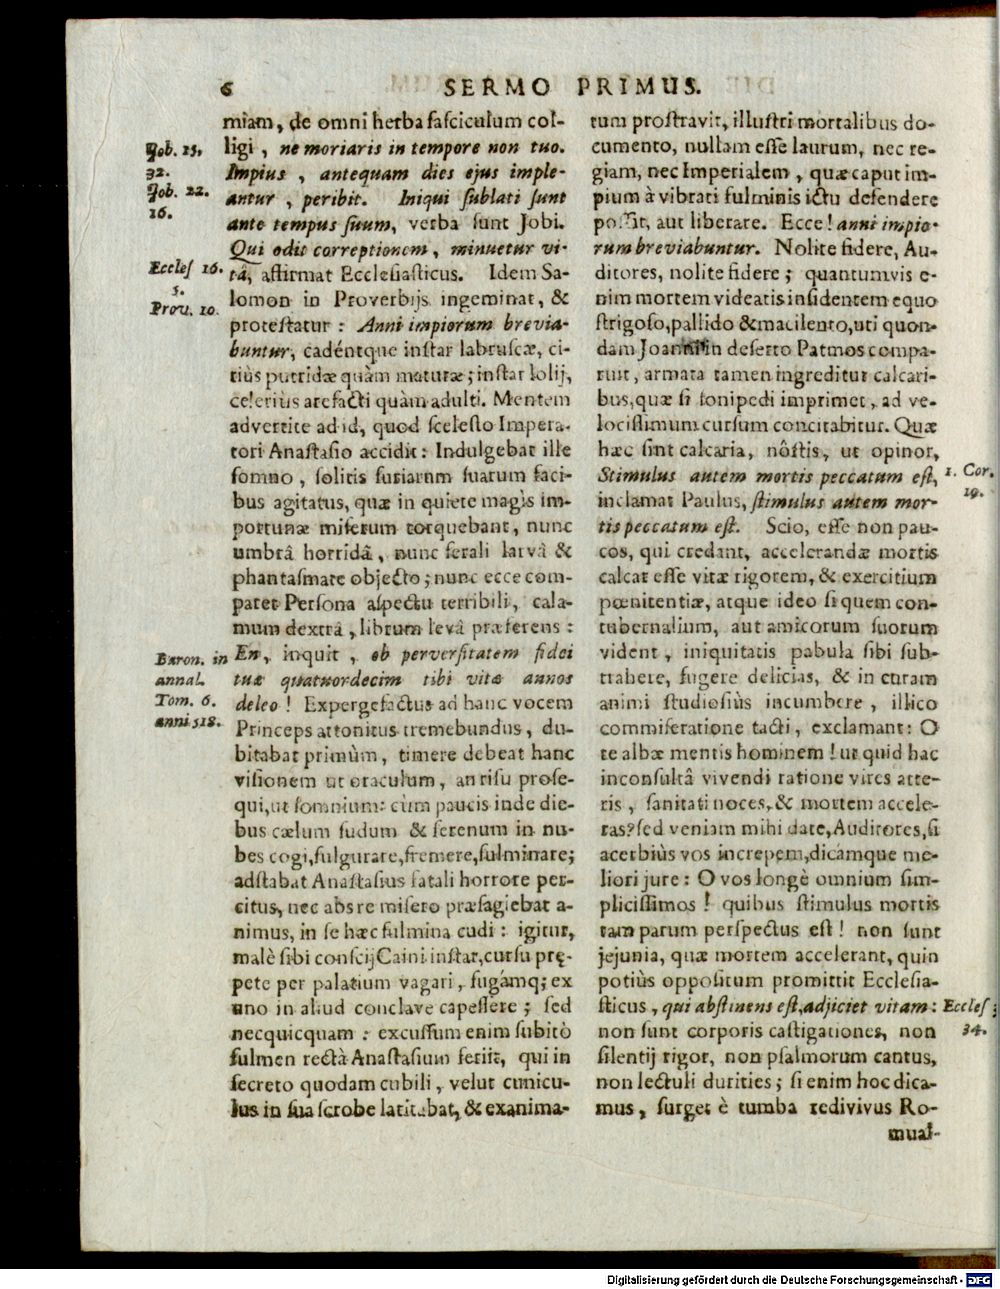 6 SERMO PRIMUS.
miam, de omni herba fasciculum col-
ligi, ne moriaris in tempore non tuo.
Impius, antequam dies ejus imple-
antur, peribit. Iniqui sublati sunt
ante tempus suum, verba sunt Jobi.
Qui odit correptionem, minuetur vi-
tâ, affirmat Ecclesiasticus. Idem Sa-
lomon in Proverbijs ingeminat, &
protestatur: Anni impiorum brevia-
buntur, cadéntque instar labruscæ, ci-
tiùs putridæ quàm maturæ; instar lolij,
celeriùs arefacti quàm adulti. Mentem
advertite ad id, quod scelesto Impera-
tori Anastasio accidit: Indulgebat ille
somno, solitis furiarum suarum faci-
bus agitatus, quæ in quiete magis im-
portunæ miserum torquebant, nunc
umbrâ horridâ, nunc ferali larvâ &
phantasmate objecto; nunc ecce com-
paret Persona aspectu terribili, cala-
mum dextrâ, librum levâ præferens:
En, inquit, ob perversitatem fidei
tuæ quatuordecim tibi vitæ annos
deleo! Expergefactus ad hanc vocem
Princeps attonitus tremebundus, du-
bitabat primùm, timere debeat hanc
visionem ut oraculum, an risu prose-
qui, ut somnium: cùm paucis inde die-
bus cælum sudum & serenum in nu-
bes cogi, fulgurare, fremere, fulminare;
adstabat Anastasius fatali horrore per-
citus, nec abs re misero præsagiebat a-
nimus, in se hæc fulmina cudi: igitur,
malè sibi conscij Caini instar, cursu prę-
pete per palatium vagari, fugámq; ex
uno in aliud conclave capessere; sed
necquicquam: excussum enim subitò
fulmen rectà Anastasium feriit, qui in
secreto quodam cubili, velut cunicu-
lus in sua scrobe latitabat, & exanima-
Job. 15,
32.
Job. 22.
16.
Eccles 16.
5.
Prov. 10.
Baron. in
annal.
Tom. 6.
anni 518.
tum prostravit, illustri mortalibus do-
cumento, nullam esse laurum, nec re-
giam, nec Imperialem, quæ caput im-
pium à vibrati fulminis ictu defendere
possit, aut liberare. Ecce! anni impio-
rum breviabuntur. Nolite fidere, Au-
ditores, nolite fidere; quantumvis e-
nim mortem videatis insidentem equo
strigoso, pallido & macilento, uti quon-
dam Joanni in deserto Patmos compa-
ruit, armata tamen ingreditur calcari-
bus, quæ si sonipedi imprimet, ad ve-
locissimum cursum concitabitur. Quæ
hæc sint calcaria, nôstis, ut opinor,
Stimulus autem mortis peccatum est,
inclamat Paulus, stimulus autem mor-
tis peccatum est. Scio, esse non pau-
cos, qui credant, accelerandæ mortis
calcar esse vitæ rigorem, & exercitium
pœnitentiæ, atque ideo si quem con-
tubernalium, aut amicorum suorum
vident, iniquitatis pabula sibi sub-
trahere, fugere delicias, & in curam
animi studiosiùs incumbere, illico
commiseratione tacti, exclamant: O
te albæ mentis hominem! ut quid hac
inconsultâ vivendi ratione vires atte-
ris, sanitati noces, & mortem accele-
ras? sed veniam mihi date, Auditores, si
acerbiùs vos increpem, dicámque me-
liori jure: O vos longè omnium sim-
plicissimos! quibus stimulus mortis
tam parum perspectus est! non sunt
jejunia, quæ mortem accelerant, quin
potiùs oppositum promittit Ecclesia-
sticus, qui abstinens est, adjiciet vitam:
non sunt corporis castigationes, non
silentij rigor, non psalmorum cantus,
non lectuli durities; si enim hoc dica-
mus, surget è tumba redivivus Ro-
mual-
1. Cor.
19.
Eccles;
34.
Digitalisierung gefördert durch die Deutsche Forschungsgemeinschaft - DFG